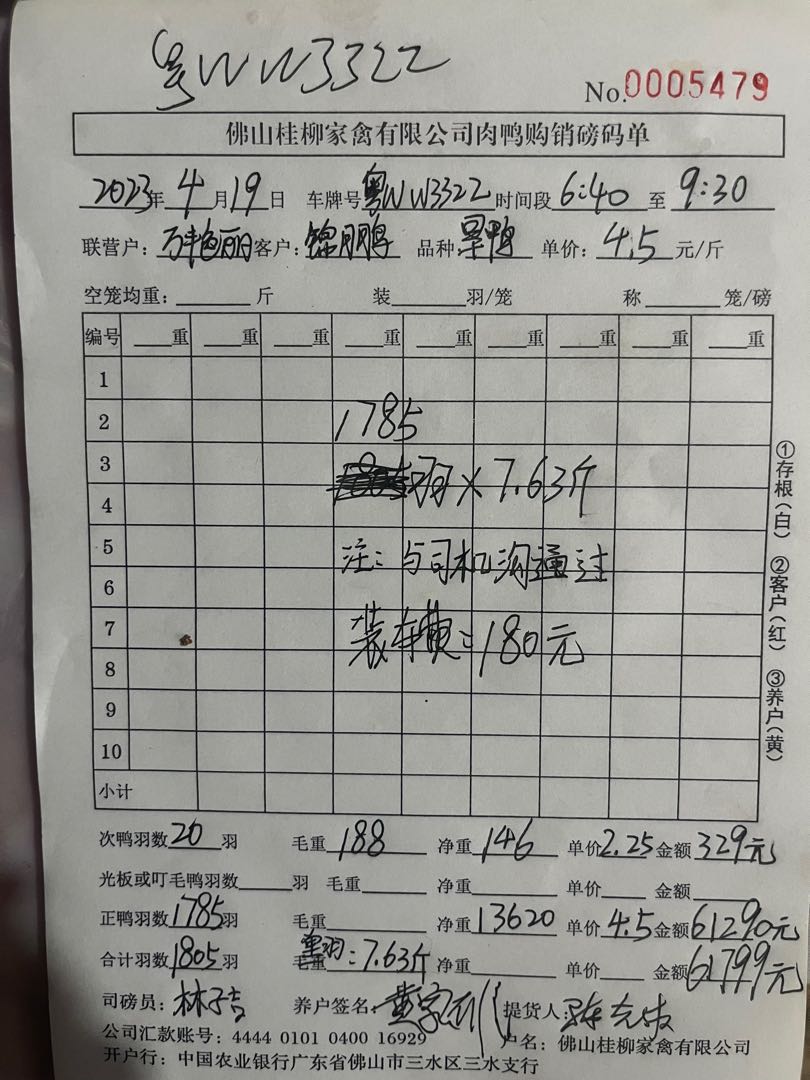 粤WW3322
No.0005479
佛山桂柳家禽有限公司肉鸭购销磅码单
2023年4月19日 车牌号粤WW3322时间段6:40至9:30
联营户: 客户:锦鹏 品种: 单价:4.5元/斤
空笼均重: 斤 装 羽/笼 称 笼/磅
编号 重 重 重 重 重 重 重 重 重
1
2 1785
3 羽×7.63斤
4
5 注:与司机沟通过
6
7 装车费=180元
8
9
10
小计
①存根(白) ②客户(红) ③养户(黄)
次鸭羽数20羽 毛重188 净重146 单价2.25金额329元
光板或叮毛鸭羽数 羽 毛重 净重 单价 金额
正鸭羽数1785羽 毛重 净重13620 单价4.5金额61290元
合计羽数1805羽 毛重 单羽:7.63斤 净重 单价 金额61799元
司磅员:林子吉 养户签名: 提货人:
公司汇款账号:4444 0101 0400 16929 户名:佛山桂柳家禽有限公司
开户行:中国农业银行广东省佛山市三水区三水支行